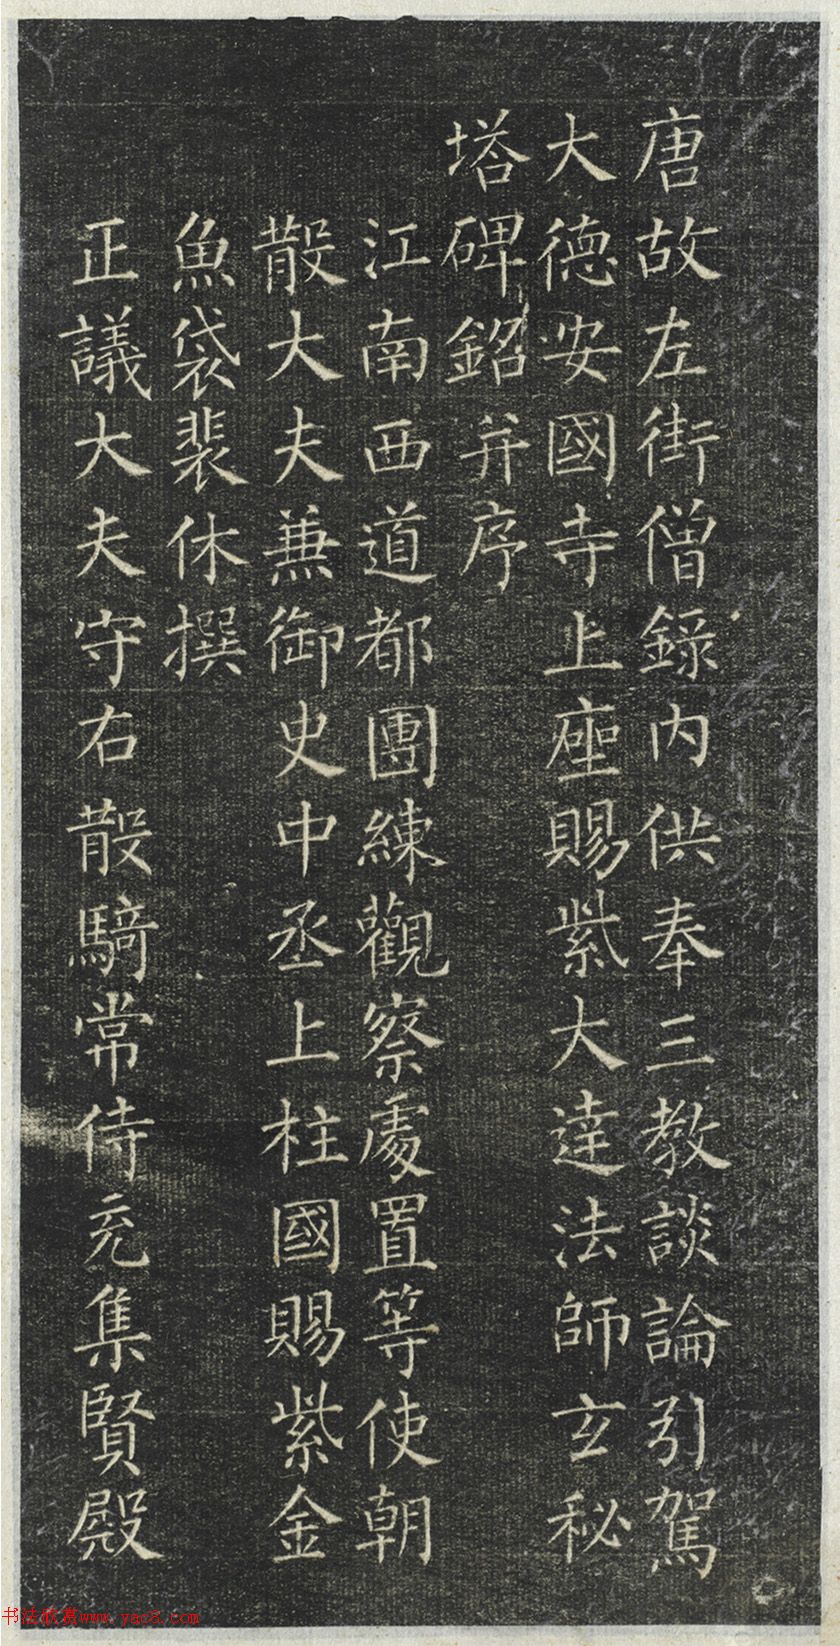 唐故左街僧錄內供奉三教談論引駕
大德安國寺上座賜紫大達法師玄秘
塔碑銘并序
江南西道都團練觀察處置等使朝
散大夫兼御史中丞上柱國賜紫金
魚袋裴休撰
正議大夫守右散騎常侍充集賢殿
书法欣赏www.yac8.com